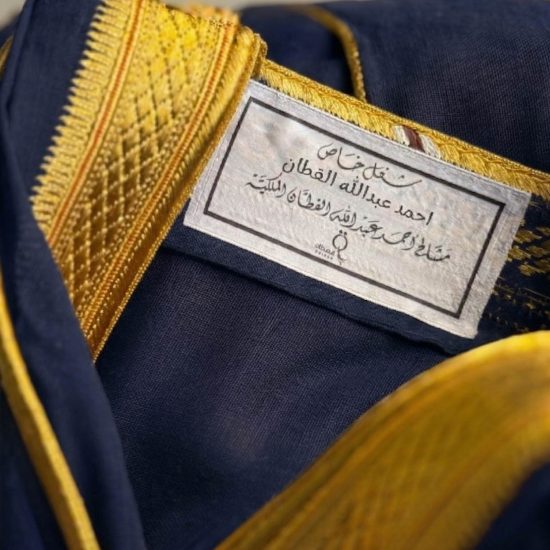 شغل خاص
احمد عبدالله القطان
مشالح احمد عبدالله القطان الملكية
القطان